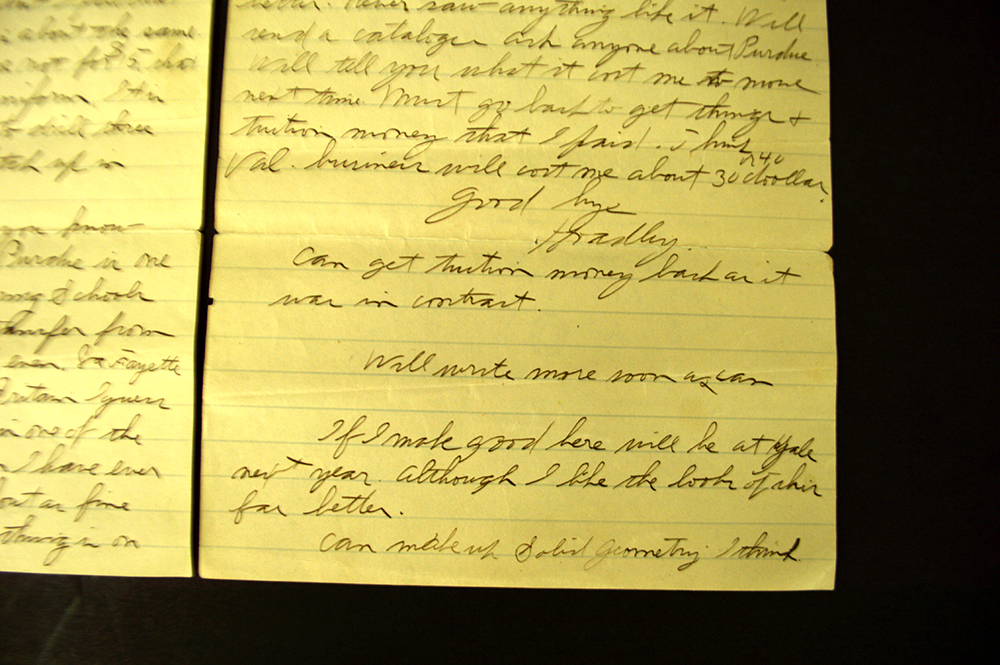 about the same
not for $5
to drill three
up in
you know
Purdue is one
Schools
transfer from
even. La Fayette
I guess
in one of the
I have ever
but as fine
thing is on
never saw anything like it. Will
send a cataloger ask anyone about Purdue
Will tell you what it cost me to move
next time. Must go back to get things +
tuition money that I paid. I think
Val. business will cost me about 30 or 40 doollar
Good bye
Hradley.
Can get tuition money back as it
was in contract.
Will write more soon as can
If I make good here will be at Yale
next year. Although I like the looks of this
far better.
Can make up Solid Geometry I think